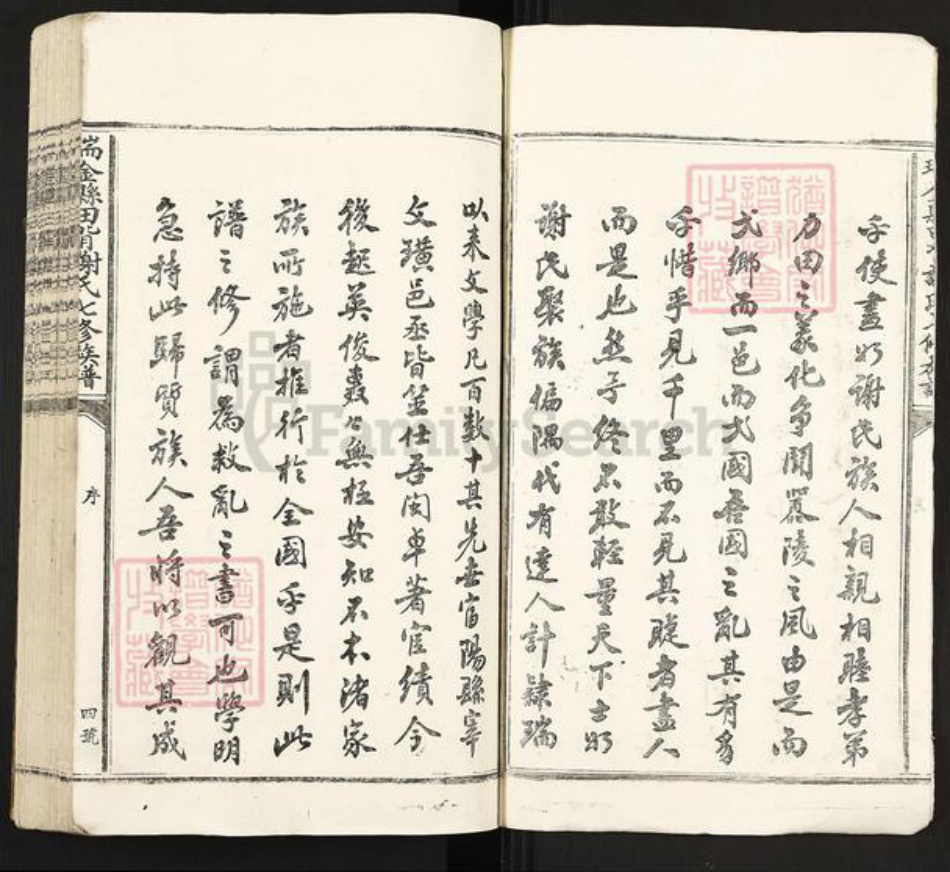 乎使盡如謝氏族人相親相睦孝弟
力田之義化爭鬬囂陵之風由是而
式鄉而一邑而式國吾國之亂其有多
乎惜乎見千里而不見其睫者盡人
而是也然予終不敢輕量天下士如
謝氏聚族偏隅代有達人計隸瑞
以來文學凡百數十其先世富陽縣宰
文璜邑丞皆筮仕吾閩卓著宦績今
後起英俊裊裊無極安知不本諸家
族所施者推行於全國乎是則此
譜之修謂為救亂之書可也學明
急持此歸質族人吾將以觀其成
瑞金縣田背謝氏七修族譜
序
四號
FamilySearch